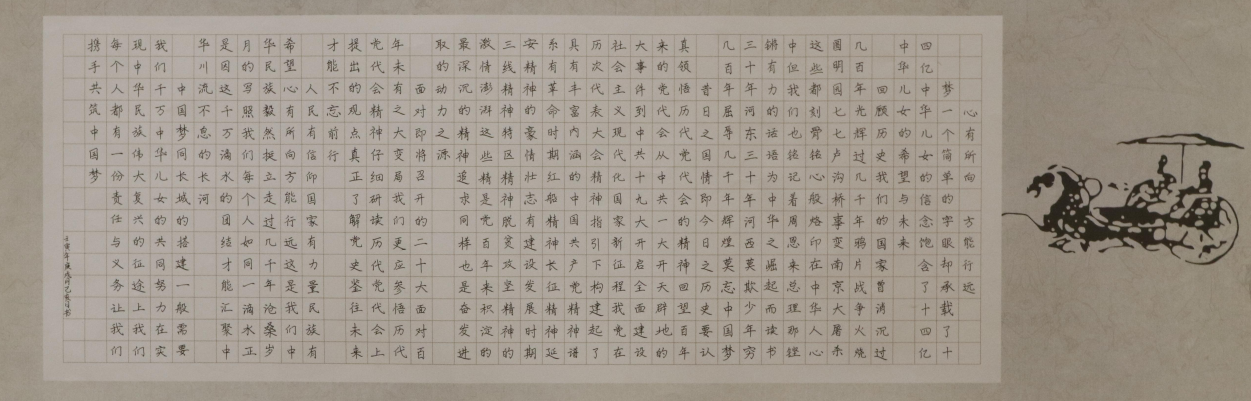 心有所向 方能行远
梦一个简单的字眼却承载了十
四亿中华儿女的信念饱含了十四亿
中华儿女的希望与未来
回顾历史我们的国家曾消沉过
几百年光辉过几千年鸦片战争火烧
圆明园七七卢沟桥事变南京大屠杀
这些都刻骨铭心般烙印在中华人心
中但我们也铭记着周恩来总理那铿
锵有力的话语为中华之崛起而读书
三十年河东三十年河西莫欺少年穷
几百年屈辱几千年辉煌莫忘中国梦
昔日之国情即今日之历史要认
真领悟历代党代会的精神回望百年
来的党代会从中共一大开天辟地的
大事件到中共十九大开启全面建设
社会主义现代化国家新征程我党在
历次代表大会精神指引下构建起了
具有丰富内涵的中国共产党精神谱
系有革命时期红船精神长征精神延
安精神的豪情壮志有建设发展时期
三线精神特区精神脱贫攻坚精神的
激情澎湃这些精是党百年来积淀的
最深沉的精神追求同样也是奋发进
取的动力之源
面对即将召开的二十大面对百
年未有之大变局我们更应参悟历代
党代会精神仔细研读历代党代会上
提出的观点真正了解党史鉴往未来
才能不忘前行
人民有信仰国家有力量民族有
希望心有所向方能行远这是我们中
华民族毅然挺立走过几千年沧桑岁
月的写照我们每个人如同一滴水正
是因这千万滴水的团结才能汇聚中
华川流不息的长河
中国梦同长城的搭建一般需要
我们千万中华儿女的共同努力在实
现中华民族伟大复兴的征途上我们
每个人都有一份责任与义务让我们
携手共筑中国梦
壬寅年